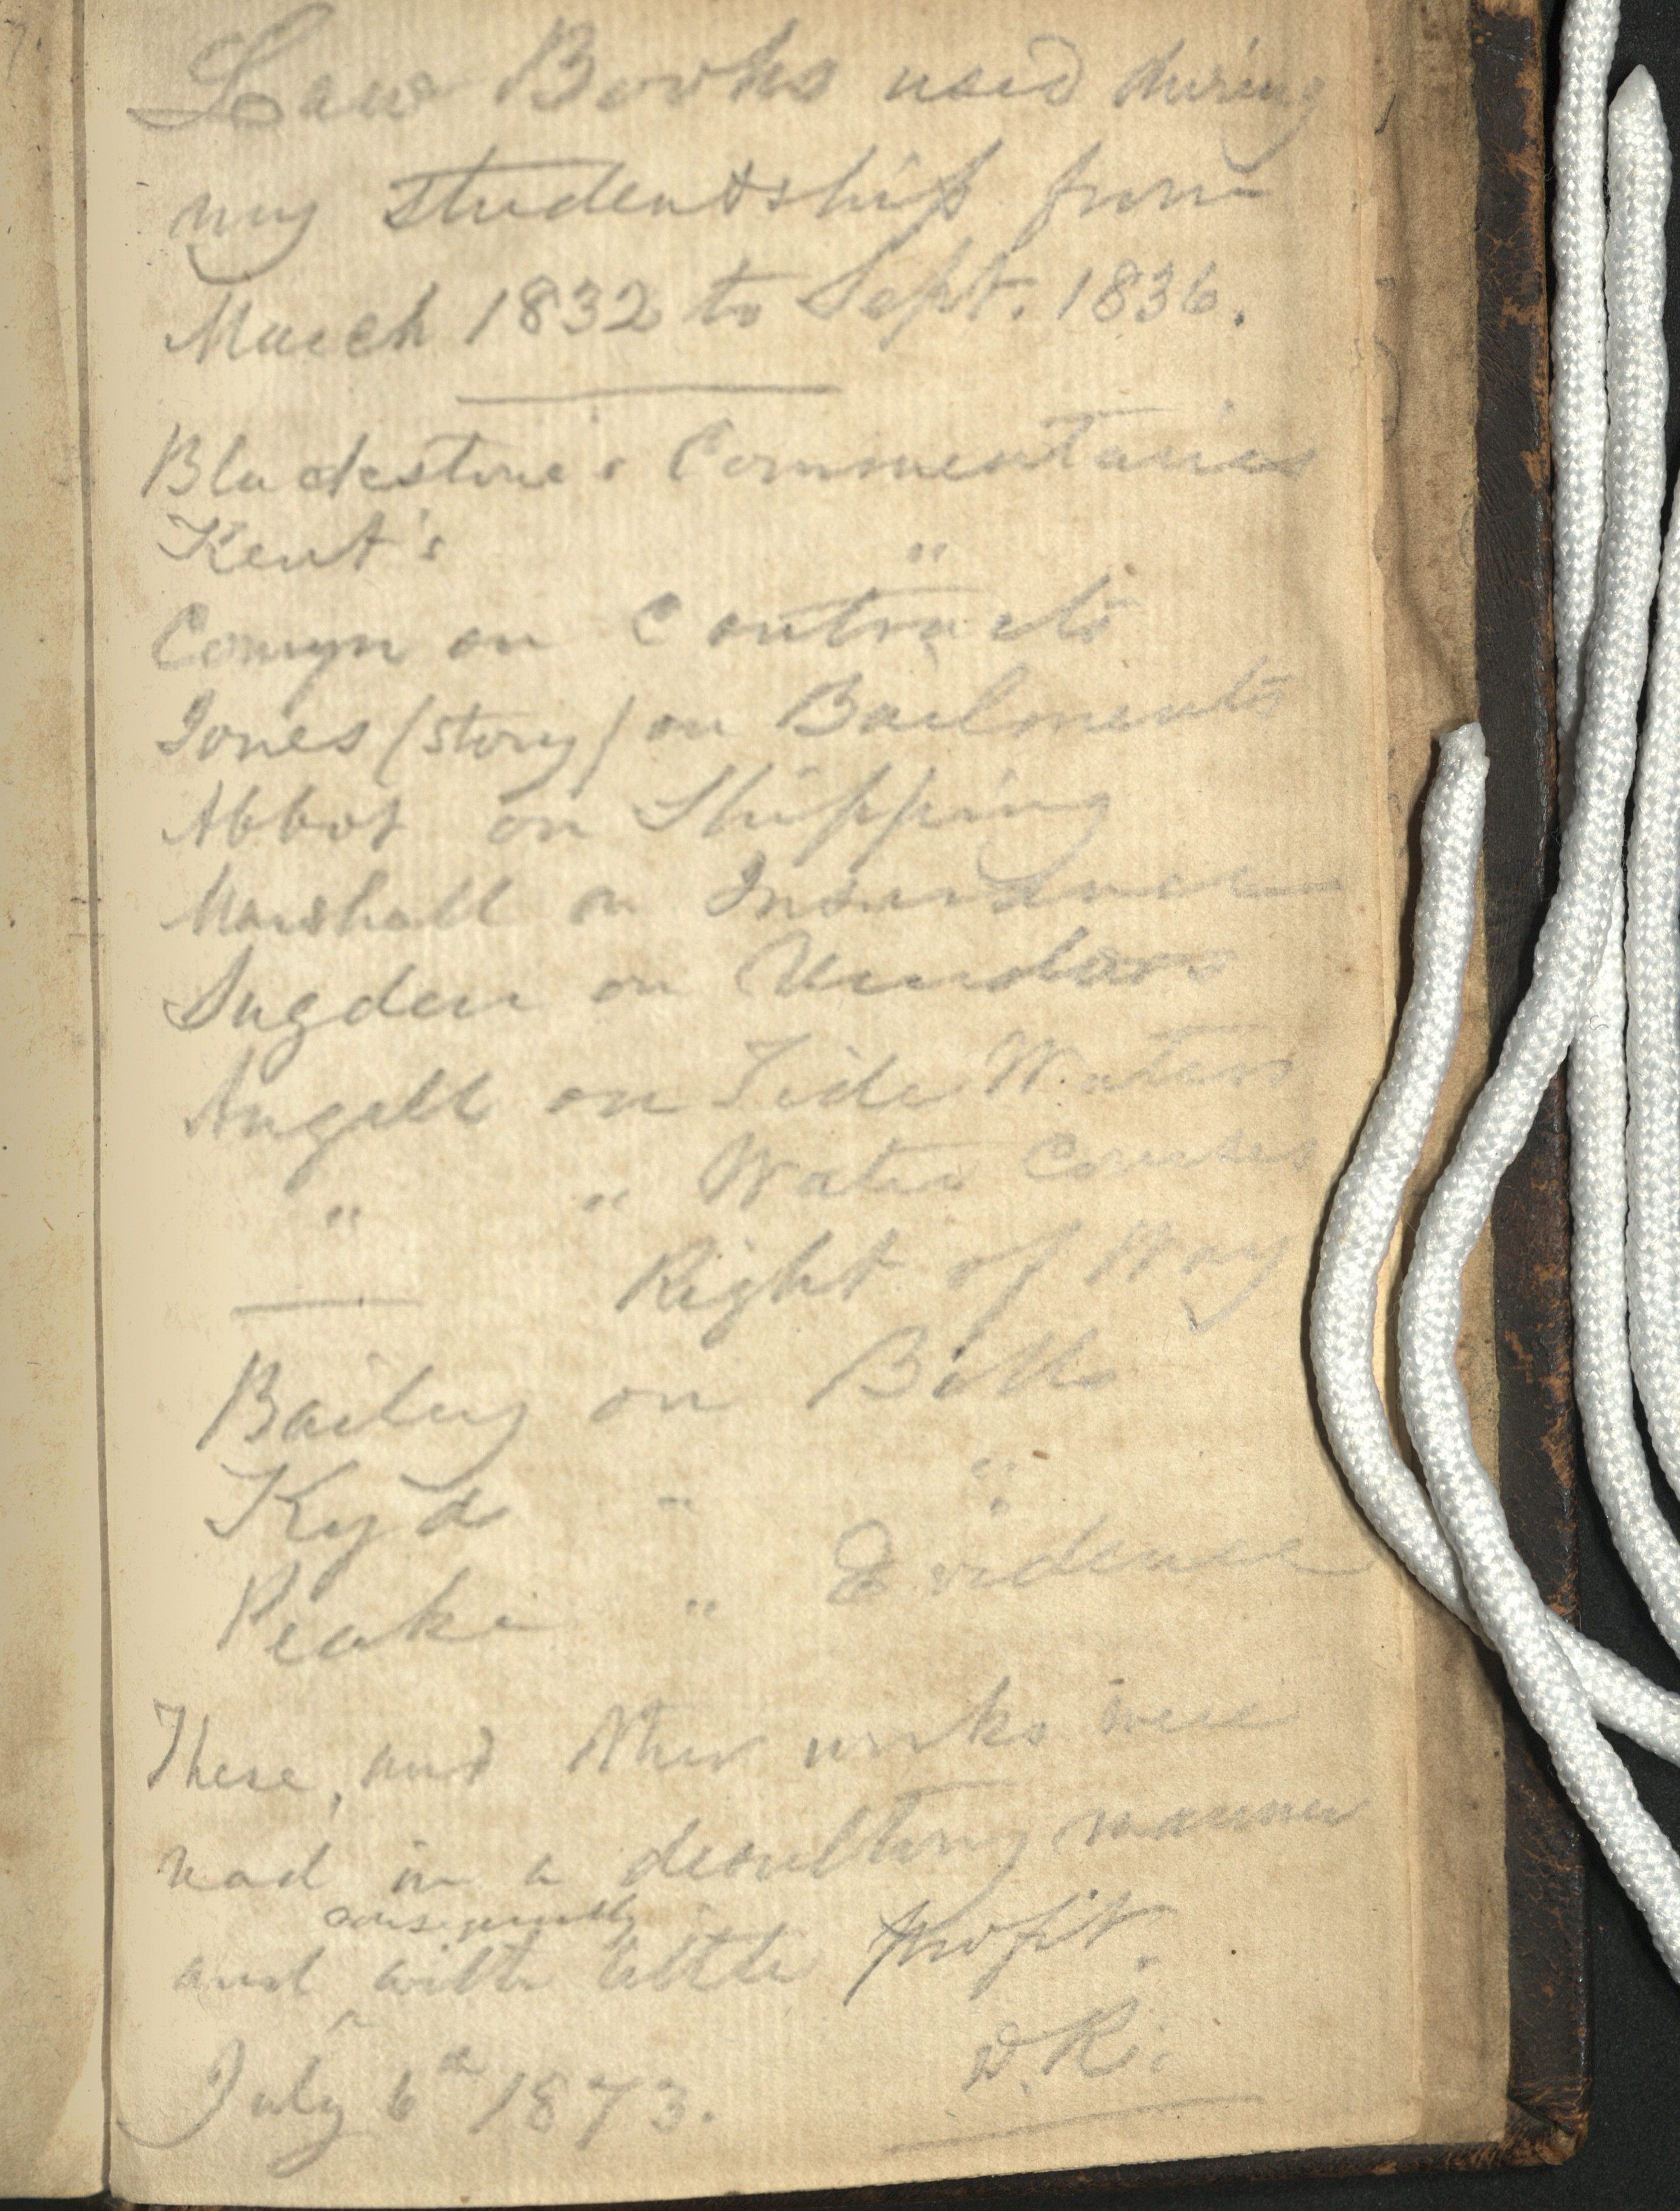 Law Books used during
my studentship from
March 1832 to Sept. 1836.
Blackstone's Commentaries
Kent's "
Comyn on Contracts
Jones (Story) on Bailments
Abbot on Shipping
Marshall on Insurance
Sugden on Vendors
Angell on Tide Waters
" " Water Courses
Right of Way
Bailey on Bills
Kyd " "
Peake " Evidence
These, and other works were
read in a desultory manner
consequently
and with little profit.
^
D. R.
July 6th 1873.